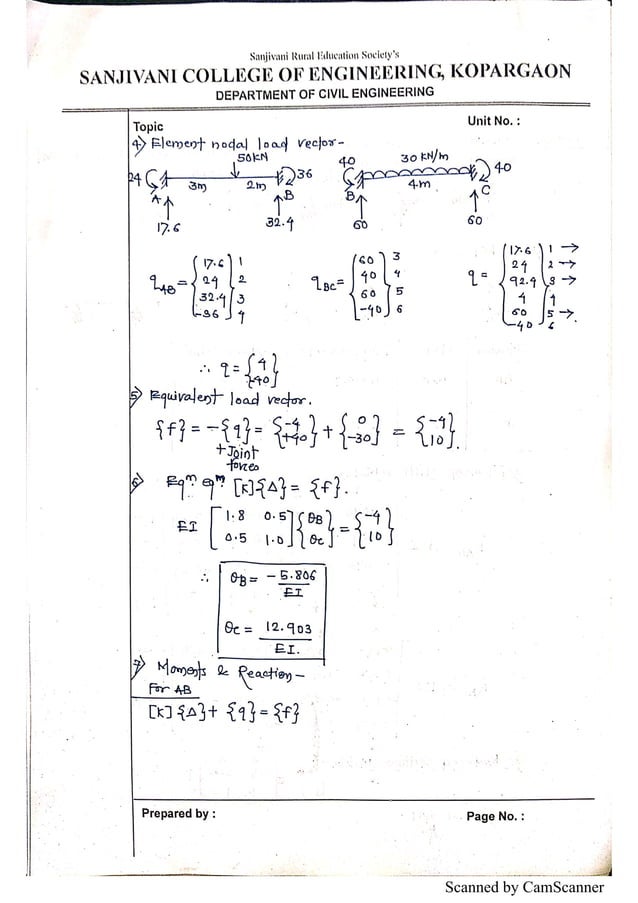 Sanjivani Rural Education Society's
SANJIVANI COLLEGE OF ENGINEERING, KOPARGAON
DEPARTMENT OF CIVIL ENGINEERING
Topic
Unit No. :
4) Element nodal load vector-
50KN
24
3m
2m
36
A
B
17.6
32.4
40
30 KN/m
40
B
4m
C
60
60
q_AB = {17.6 24 32.4 -36} 1 2 3 4
q_BC = {60 40 60 -40} 3 4 5 6
q = {17.6 24 92.4 4 60 -40} 1→ 2→ 3→ 4 5→ 6
∴ q = {4 -40}
5) Equivalent load vector.
{f} = -{q} = {-4 +40} + {0 -30} = {-4 10}.
+ Joint
forces
6) Eqⁿ eqᵐ [K]{Δ} = {f}.
EI [1.8 0.5 0.5 1.0] {θB θc} = {-4 10}
∴ θB = -5.806/EI
θc = 12.903/EI.
7) Moments & Reaction-
For AB
[K]{Δ} + {q} = {f}
Prepared by :
Page No. :
Scanned by CamScanner